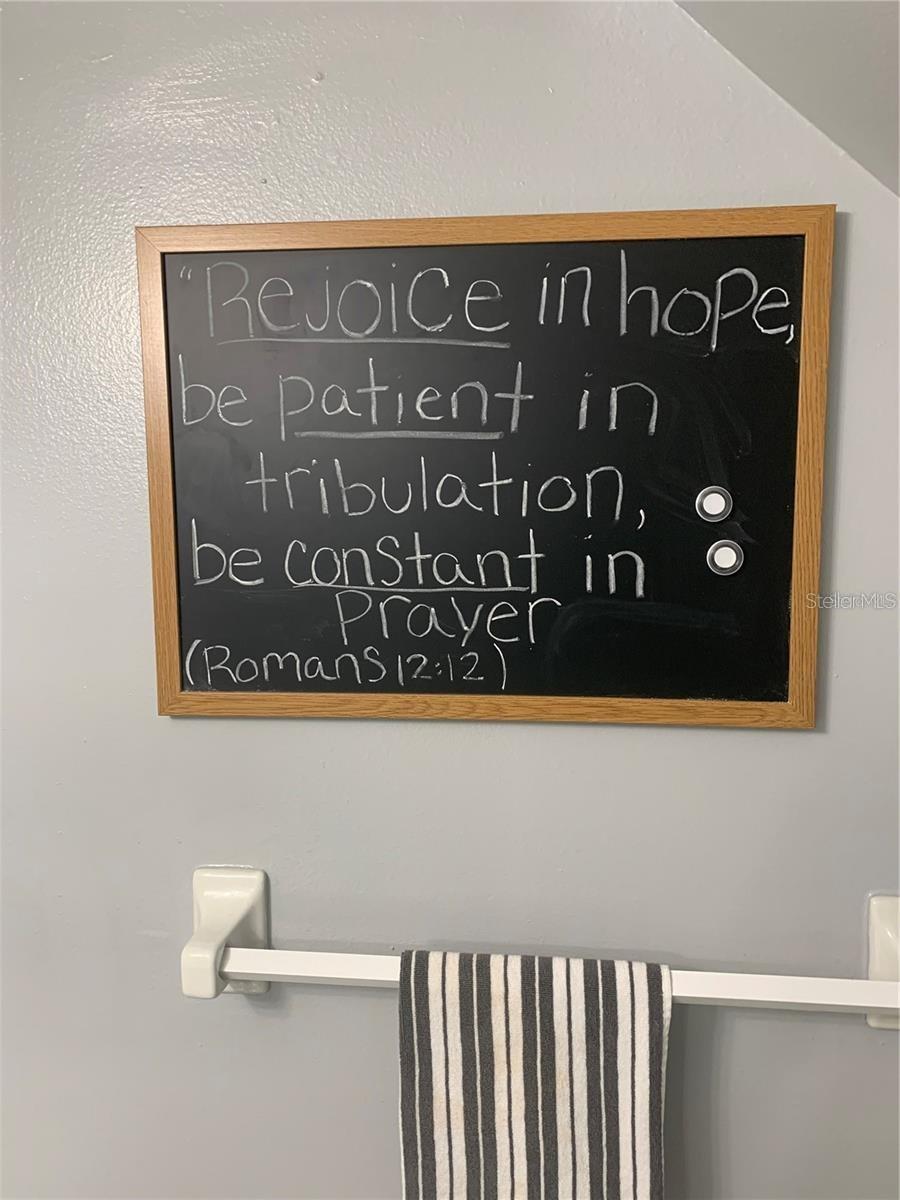 "Rejoice in hope,
be patient in
tribulation,
be constant in
prayer
(Romans 12:12)
StellarMLS